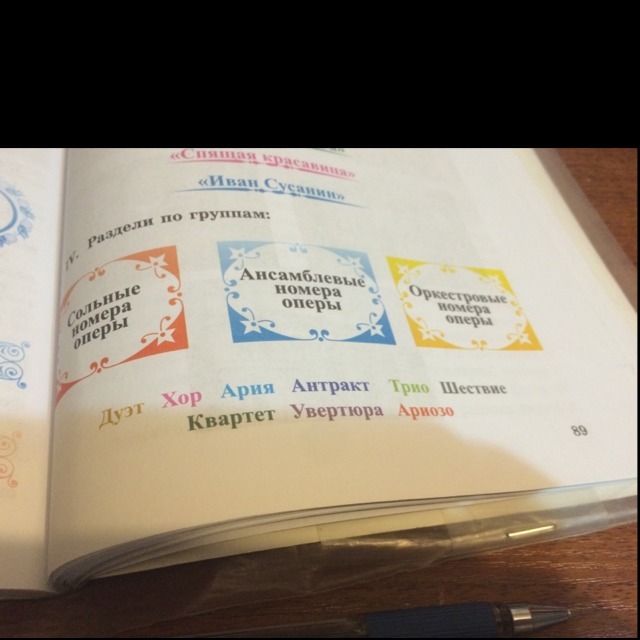 «Спящая красавица»
«Иван Сусанин»
IV. Раздели по группам:
Сольные
номера
оперы
Ансамблевые
номера
оперы
Оркестровые
номера
оперы
Дуэт Хор Ария Антракт Трио Шествие
Квартет Увертюра Ариозо
89